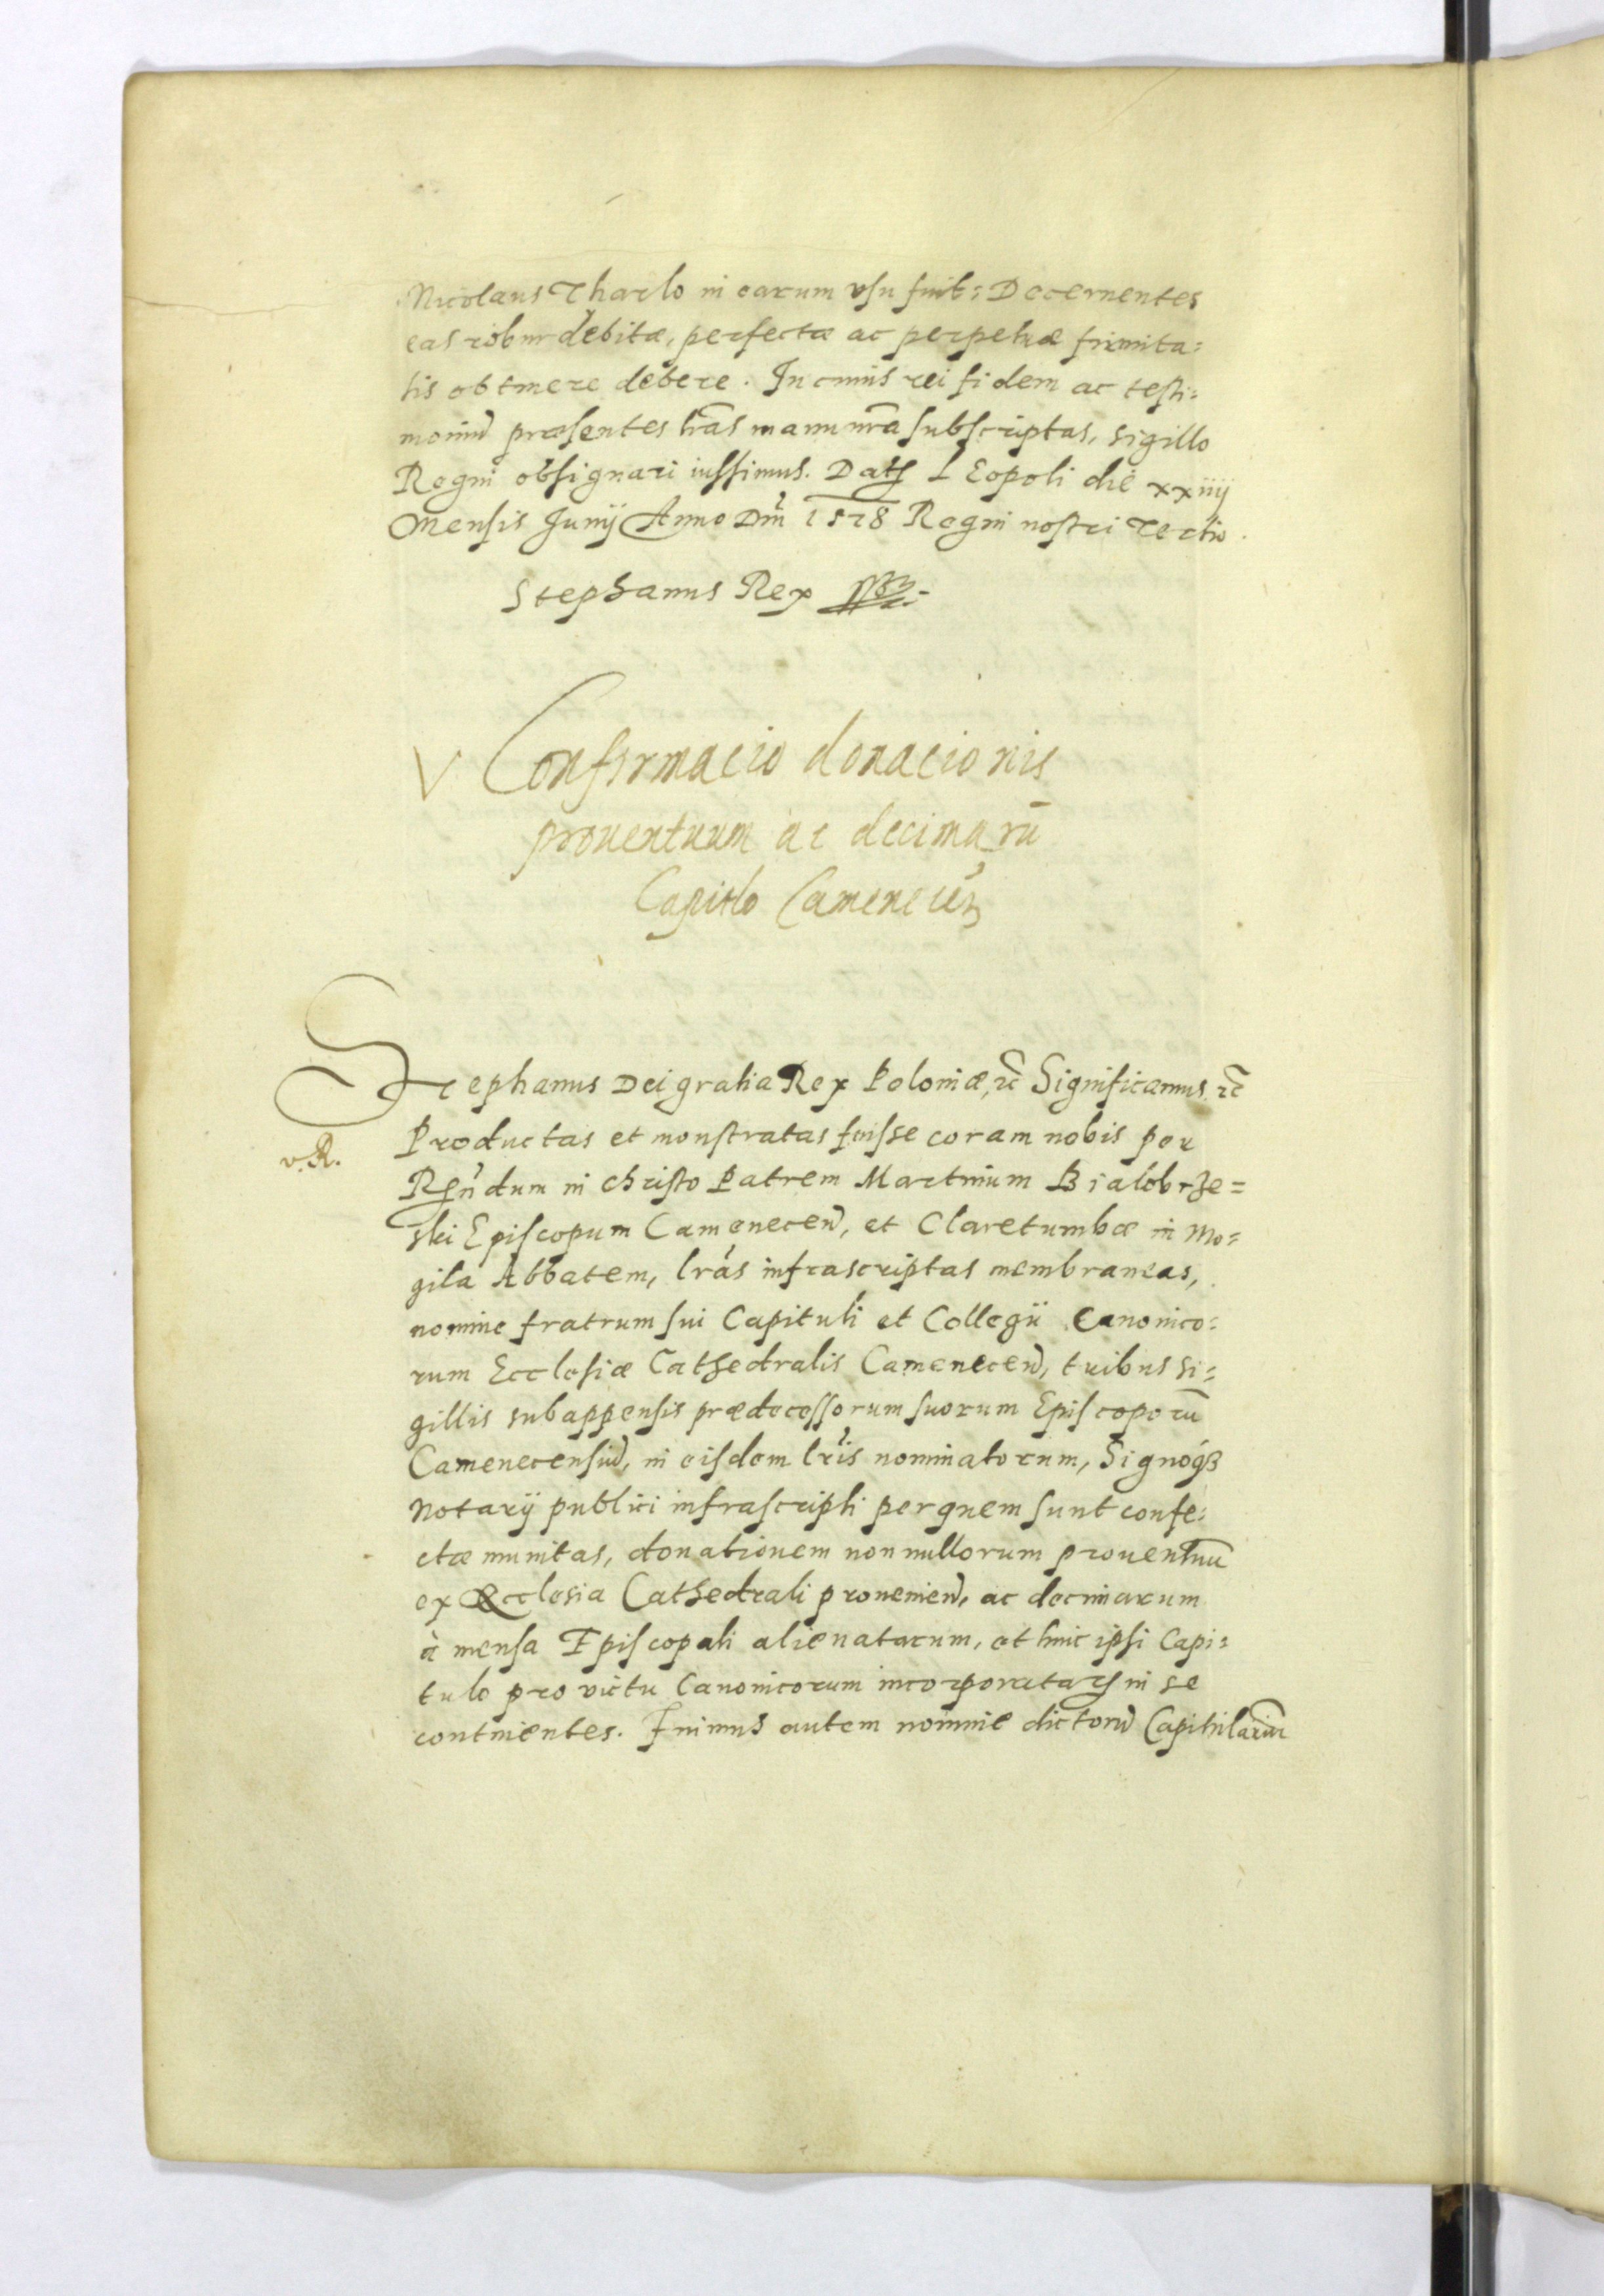 Nicolaus Tharlo in earum vsu fuit: Decernentes
eas robur debitæ, perfectæ ac perpetuæ firmita:
tis obtinere debere. In cuius rei fidem ac testi:
moniũ præsentes lr̃as manu nr̃a subscriptas, sigillo
Regni obsignari iussimus. Datꝭ LEopoli die xxiiij
Mensis Junij Anno Dni̾ 1578 Regni nostri Tertio.
Stephanus Rex
V Confirmacio donacionis
prouentuum ac decimarũ
Capitlo Camenecen̾
Stephanus Dei gratia Rex Poloniæ, ꝛc̃ Significamus ꝛc̃
v. R.
Productas et monstratas fuisse coram nobis per
Rꝭn̾dum in Christo Patrem Martinum Bialobrze=
ski Episcopum Camenecen̾, et Claretumbæ in Mo=
gila Abbatem, lrãs infrascriptas membraneas,
nomine fratrum sui Capituli et Collegii Canonico:
rum Ecclesiæ Cathedralis Camenecen̾, tribus si:
gillis subappensis prædecessorum suorum Episcoporũ
Camenecensiũ, in eisdem lrĩs nominatorum, Signoqꝫ
Notarij publici infrascripti per quem sunt confe:
ctæ munitas, donationem nonnullorum prouentuũ
ex Ecclesia Cathedrali prouenien̾, ac decimarum
à mensa Episcopali alienatarum, et huic ipsi Capi:
tulo pro victu Canonicorum incorporatarꝭ in se
continentes. Fuimus autem nomine dictorũ Capitulariũ